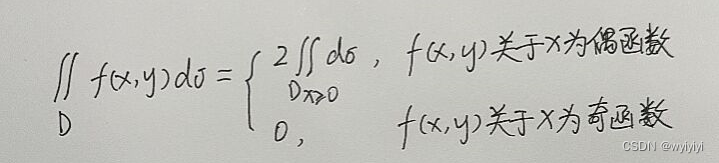 ∬_D f(x,y)dσ = { 2∬_{D x≥0} dσ, f(x,y)关于x为偶函数
0, f(x,y)关于x为奇函数
CSDN @wyiyiyi